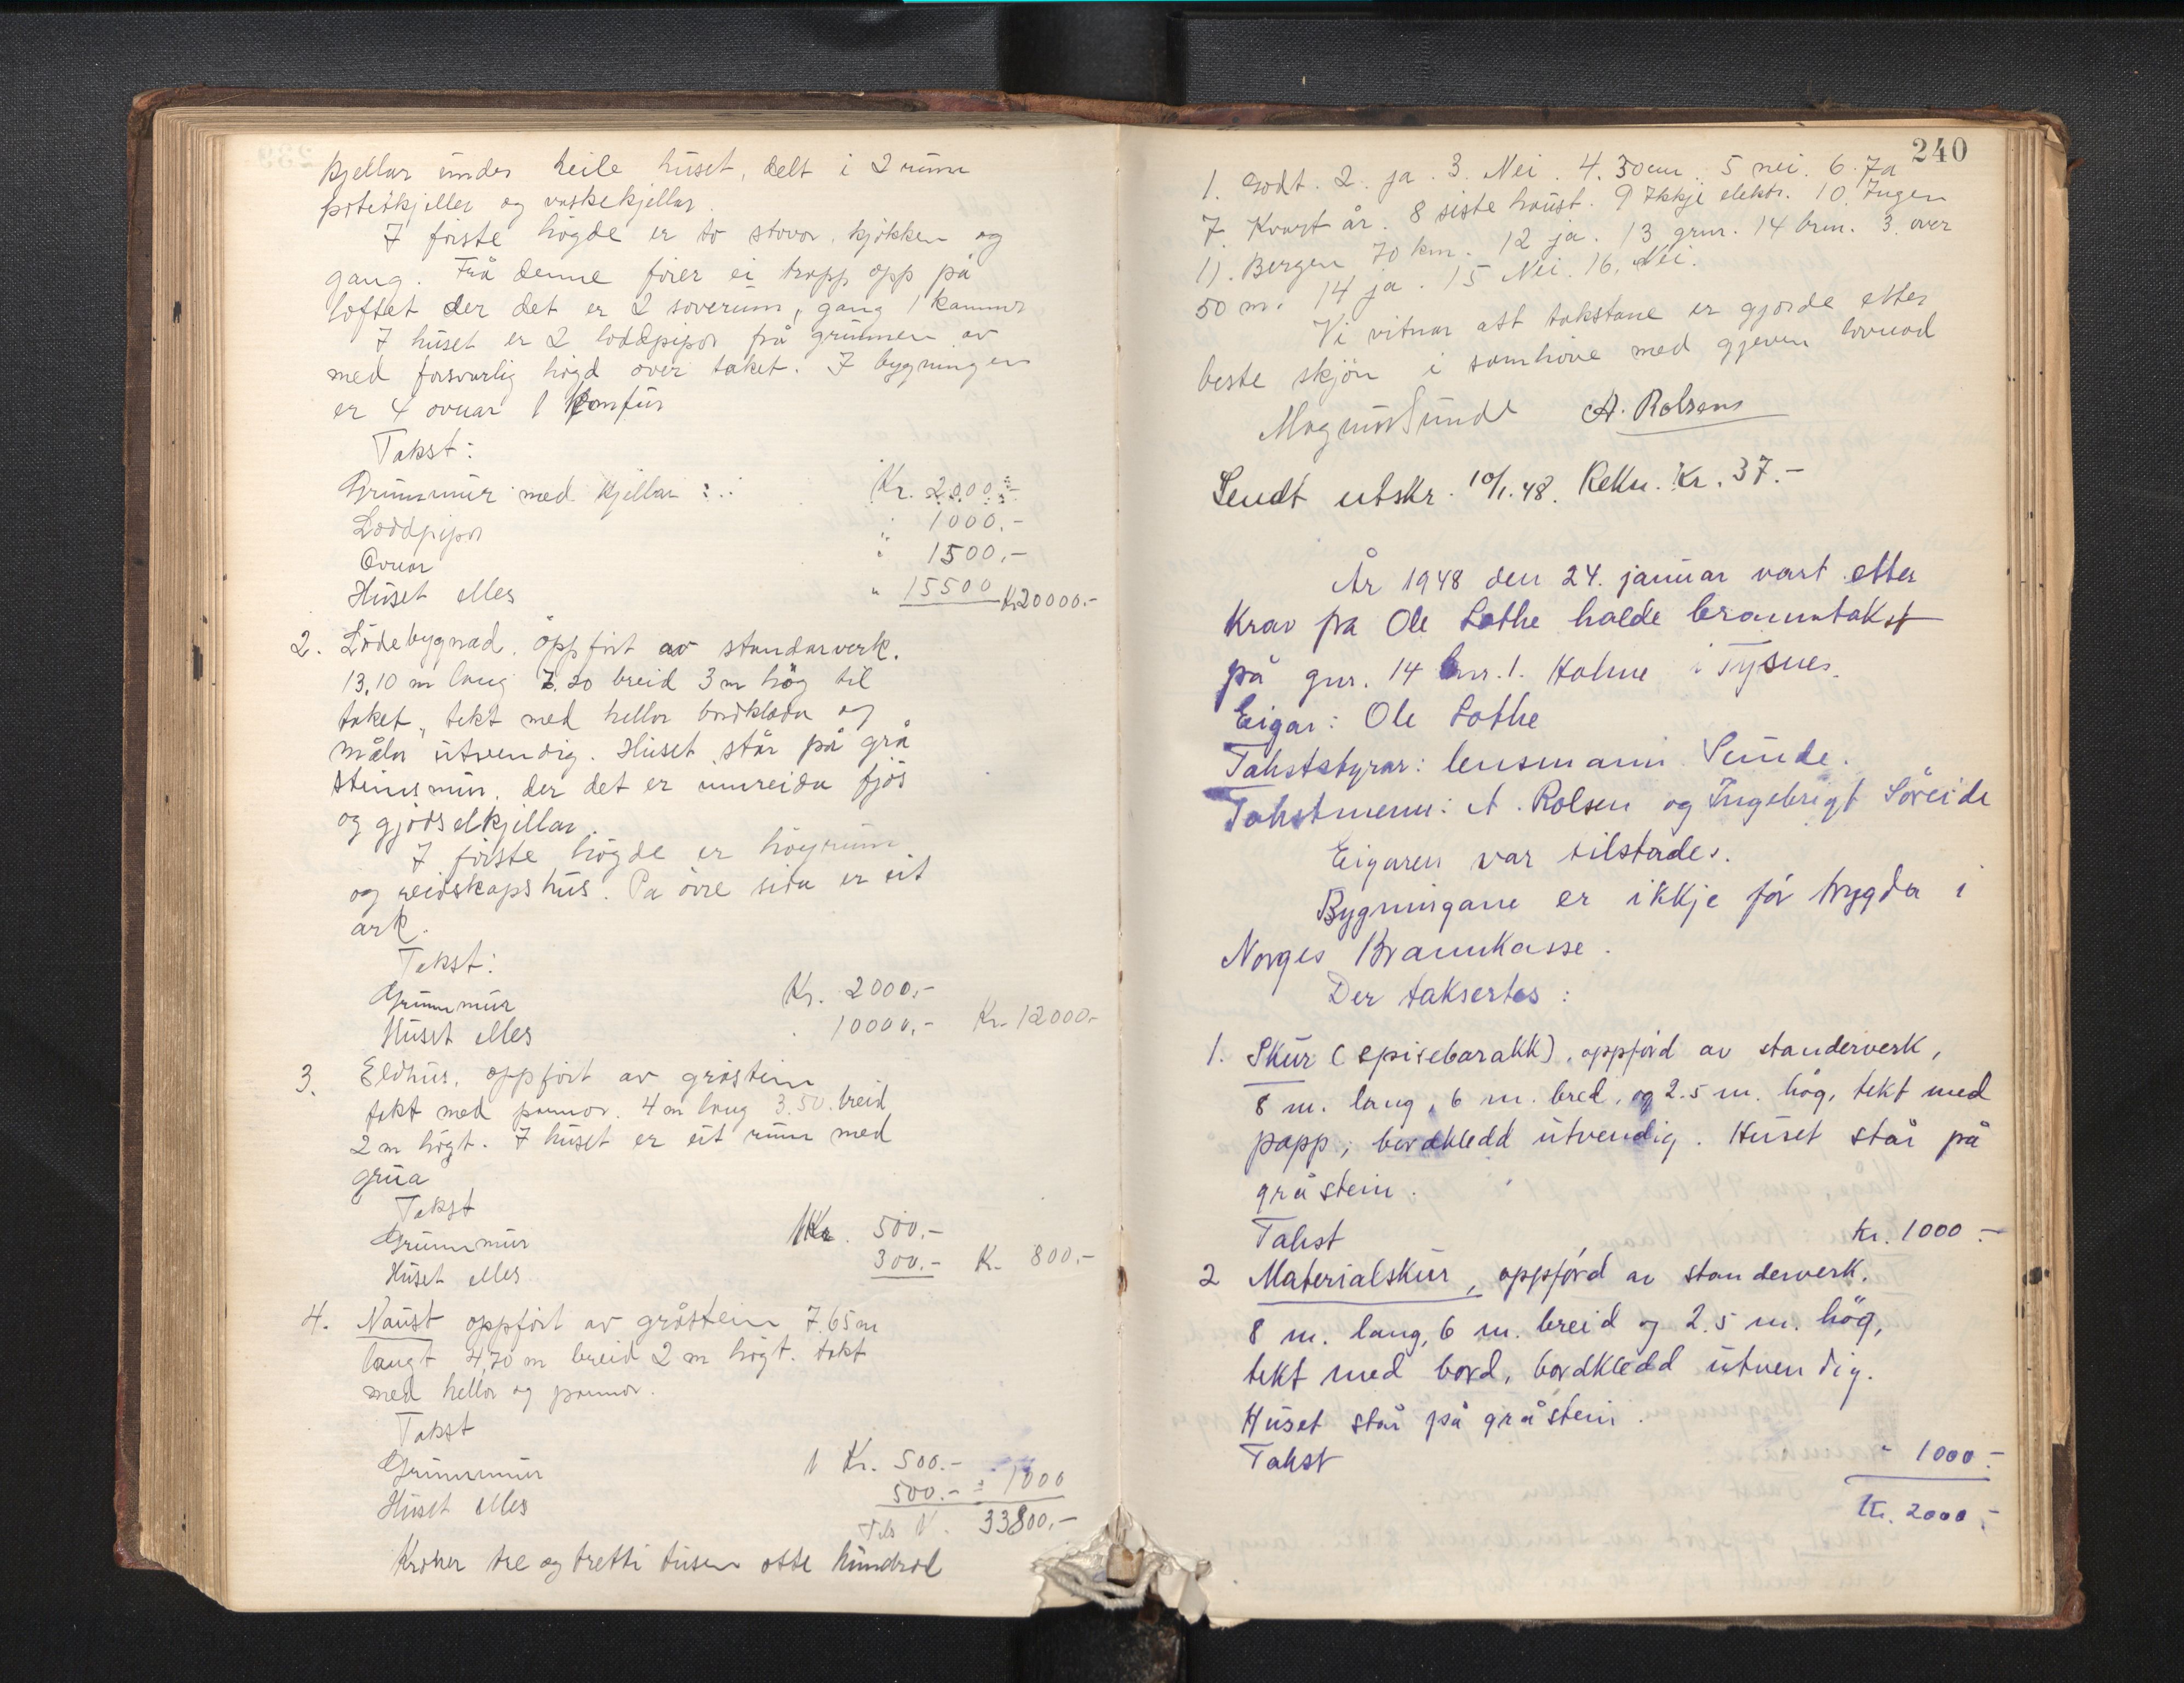 kjellar under heile huset, delt i 2 rum
poteskjeller og vaskekjellar.
I förste högde er to stovor, kjökken og
gang. Frå denne förer ei trapp opp på
loftet der det er 2 soverum, gang 1 kammer
I huset er 2 loddpipor frå grunnen av
med forsvarlig högd over taket. I bygningen
er 4 ovnar 1 komfur
Takst:
Grunnmur med kjellar : Kr. 2000.-
Loddpipor " 1000.-
Ovnar " 1500.-
Huset elles " 15500 Kr 20000.-
2. Lödebygnad, oppfört av standarverk.
13,10 m lang 7.20 breid 3 m hög til
taket, tekt med hellor bordkledn og
måla utvendig. Huset står på grå
steins mur, der det er innreida fjös
og gjödselkjellar.
I förste högde er höyrum
og reidskapshus. Pa övre sida er eit
ark.
Takst:
Grunnmur Kr. 2000.-
Huset elles 10000.- Kr. 12000.-
3. Eldhus, oppfört av gråstein
tekt med pannor. 4 m lang 3.50 breid
2 m högt. I huset er eit rum med
grua
Takst
Grunnmur Kr. 500.-
Huset elles 300.- Kr. 800.-
4. Naust oppfört av gråstein 7.65 m
langt 4,70 m breid 2 m högt. tekt
med hellor og pannor.
Takst
Grunnmur Kr. 500.-
Huset elles 500.- " 1000
33800.-
Kroner tre og tretti tusen otte hundred
240
1. Godt. 2. ja. 3. Nei. 4. 30 cm. 5 nei. 6. Ja
7. Kvart år. 8 siste haust. 9 Ikkje elektr. 10. Ingen
11. Bergen 70 km. 12 ja. 13 grnr. 14 brnr. 3. over
50 m. 14 ja. 15 Nei. 16. Nei.
Vi vitnar att takstane er gjorde etter
beste skjön i samhöve med gjeven lovnad
Magnus Sunde A. Rolsen
Sendt utskr. 10/1.48. Rekn. Kr. 37.-
År 1948 den 24. januar vart etter
krav fra Ole Lothe halde branntakst
på gnr. 14 bnr. 1. Holme i Tysnes.
Eigar: Ole Lothe
Takststyrar: lensmann Sunde.
Takstmenn: A. Rolsen og Ingebrigt Söreide
Eigaren var tilstades.
Bygningane er ikkje för trygda i
Norges Brannkasse.
Der taksertes:
1. Skur (spisebarakk), oppförd av standerverk,
8 m. lang, 6 m. bred, og 2.5 m. hög, tekt med
papp, bordkledd utvendig. Huset står på
gråstein.
Takst Kr. 1000.-
2 Materialskur, oppförd av standerverk.
8 m. lang, 6 m. breid og 2.5 m. hög,
tekt med bord, bordkledd utvendig.
Huset står på gråstein.
Takst " 1000.-
Kr. 2000.-